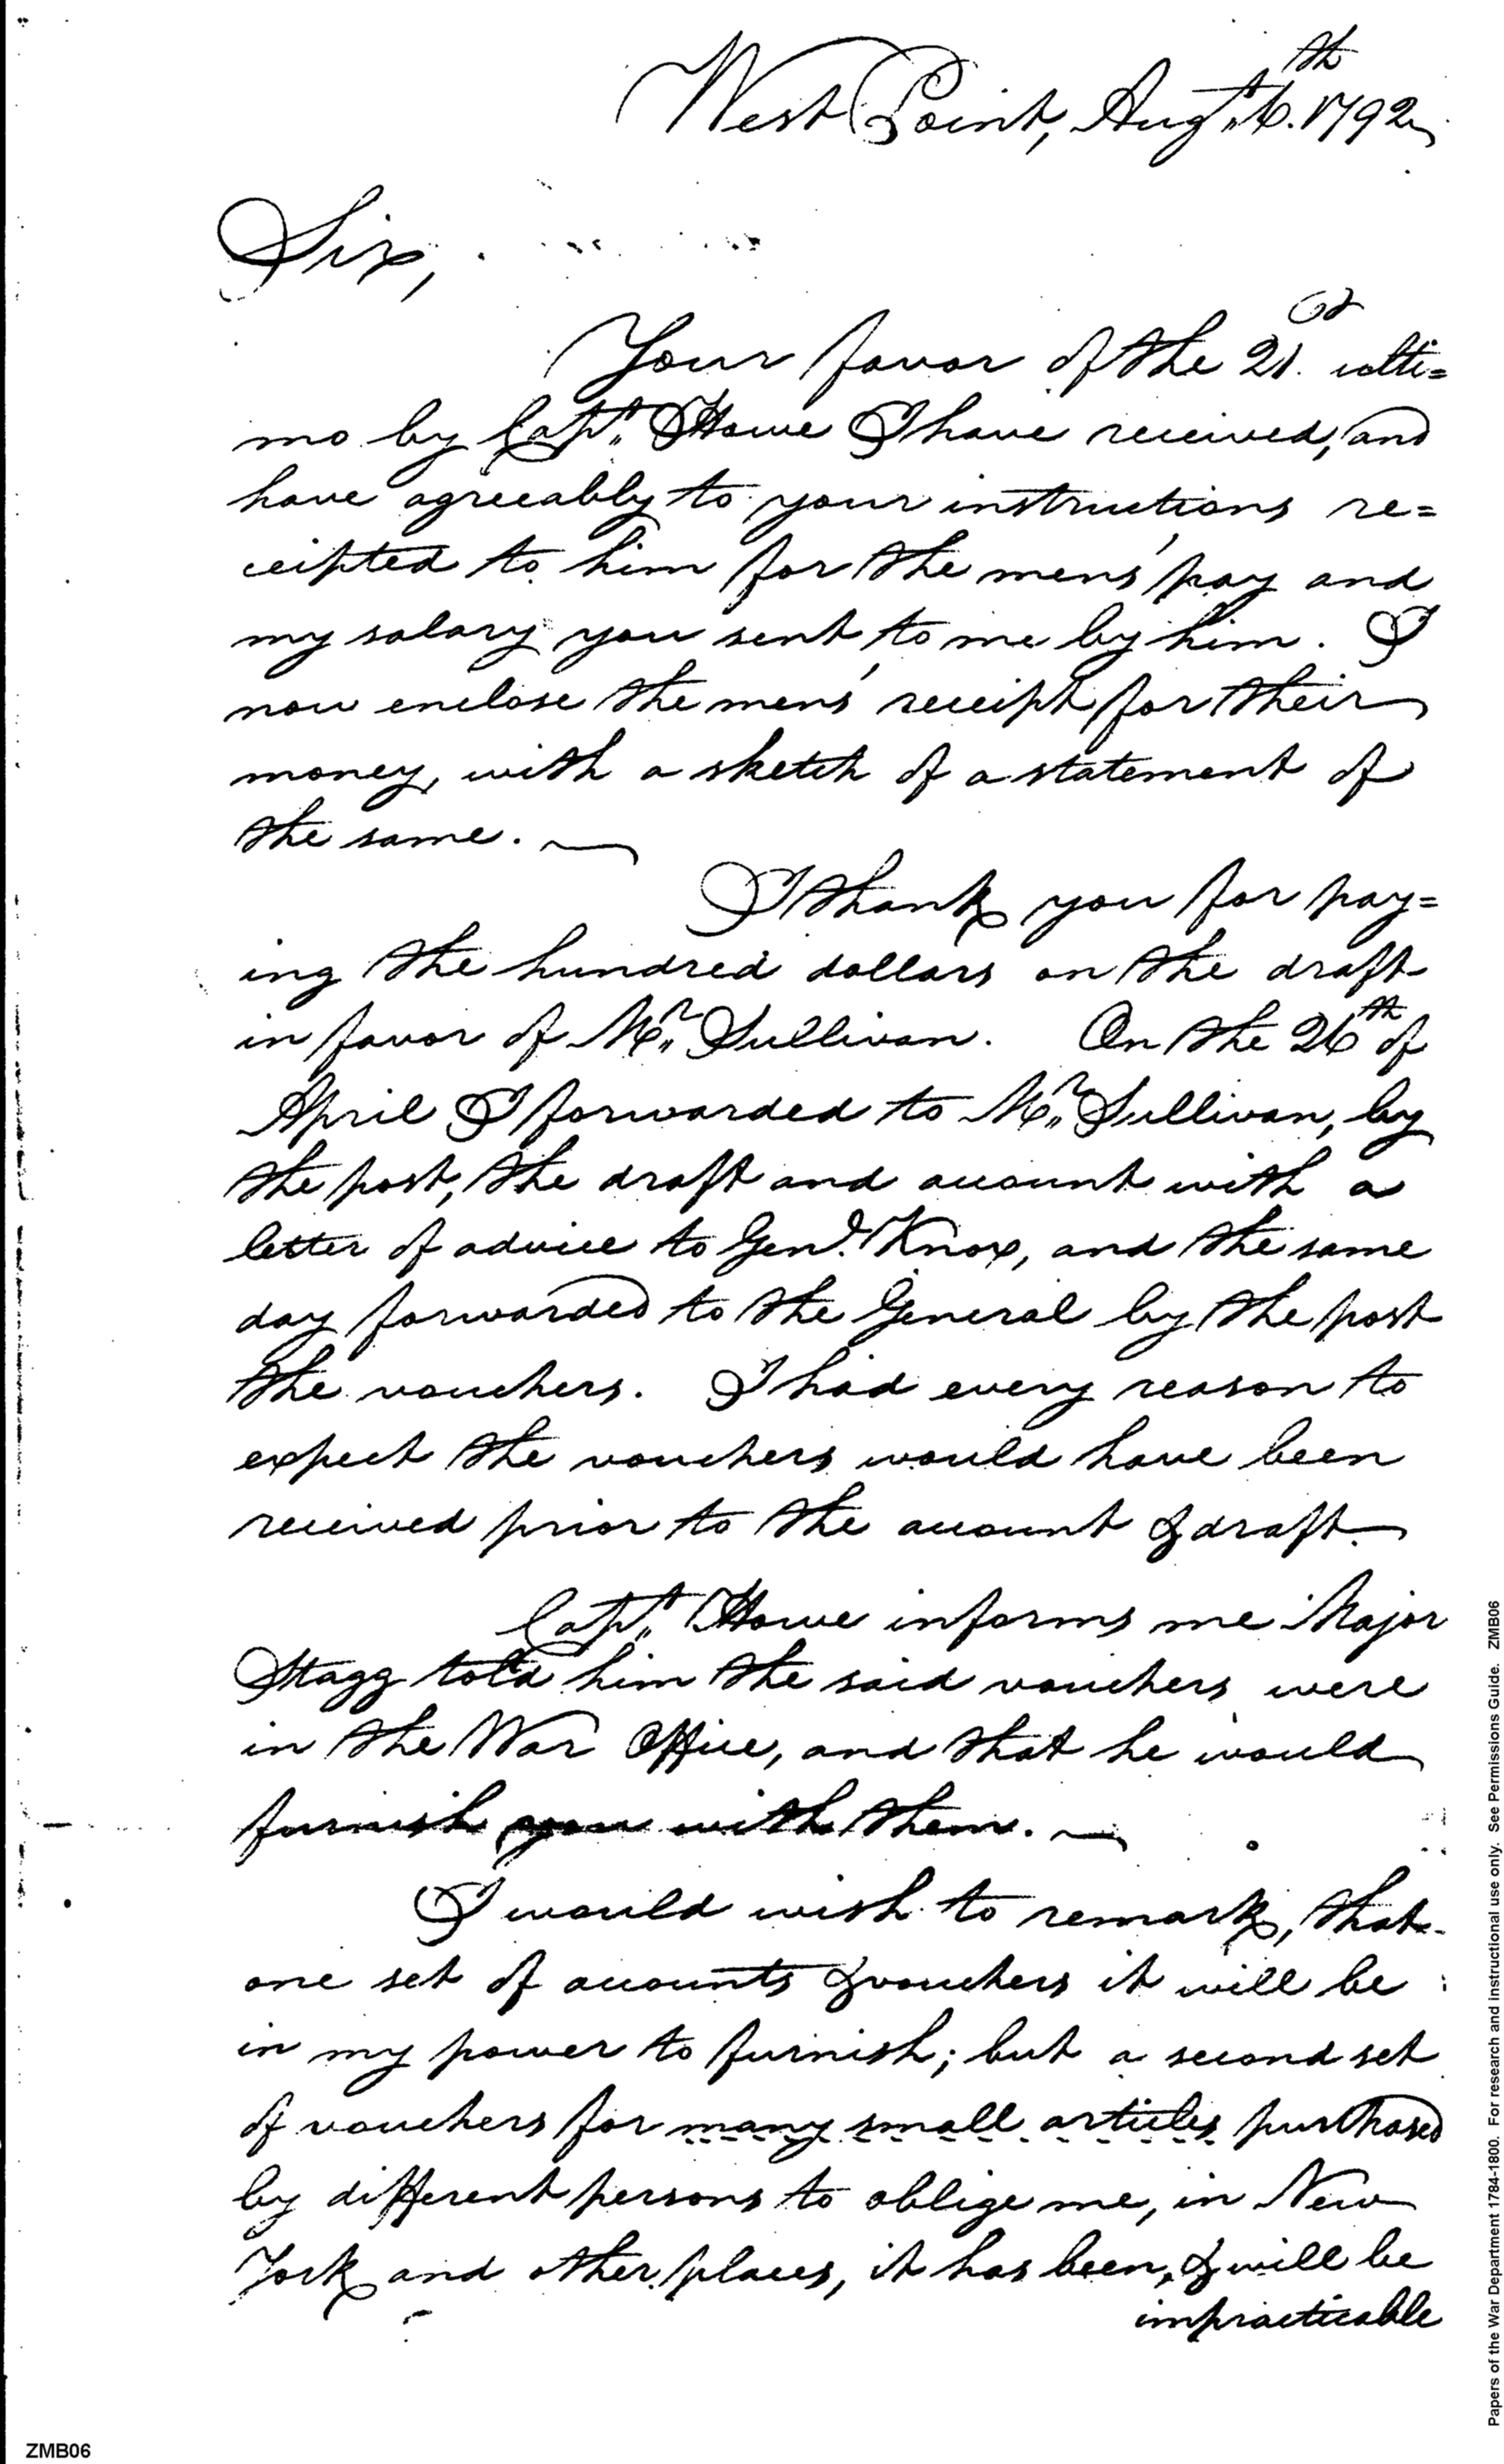 West Point, Augt. 6th. 1792,
Sir,
Your favor of the 21. ulti=
mo by Capt. Howe I have received, and
have agreeably to your instructions re=
ceipted to him for the mens' pay and
my salary you sent to me by him. I
now enclose the mens' receipt for their
money, with a sketch of a statement of
the same. —
I thank you for pay=
ing the hundred dollars on the draft
in favor of Mr. Sullivan. On the 26th of
April I forwarded to Mr. Sullivan, by
the post, the draft and account with a
letter of advice to Genl. Knox, and the same
day forwarded to the General by the post
the vouchers. I had every reason to
expect the vouchers would have been
received prior to the account & draft.
Capt. Howe informs me Major
Stagg told him the said vouchers were
in the War Office, and that he would
furnish you with them. —
I would wish to remark, that
one set of accounts & vouchers it will be
in my power to furnish; but a second set
of vouchers for many small articles purchased
by different persons to oblige me, in New
York and other places, it has been, & will be
impracticable
Papers of the War Department 1784-1800. For research and instructional use only. See Permissions Guide. ZMB06
ZMB06